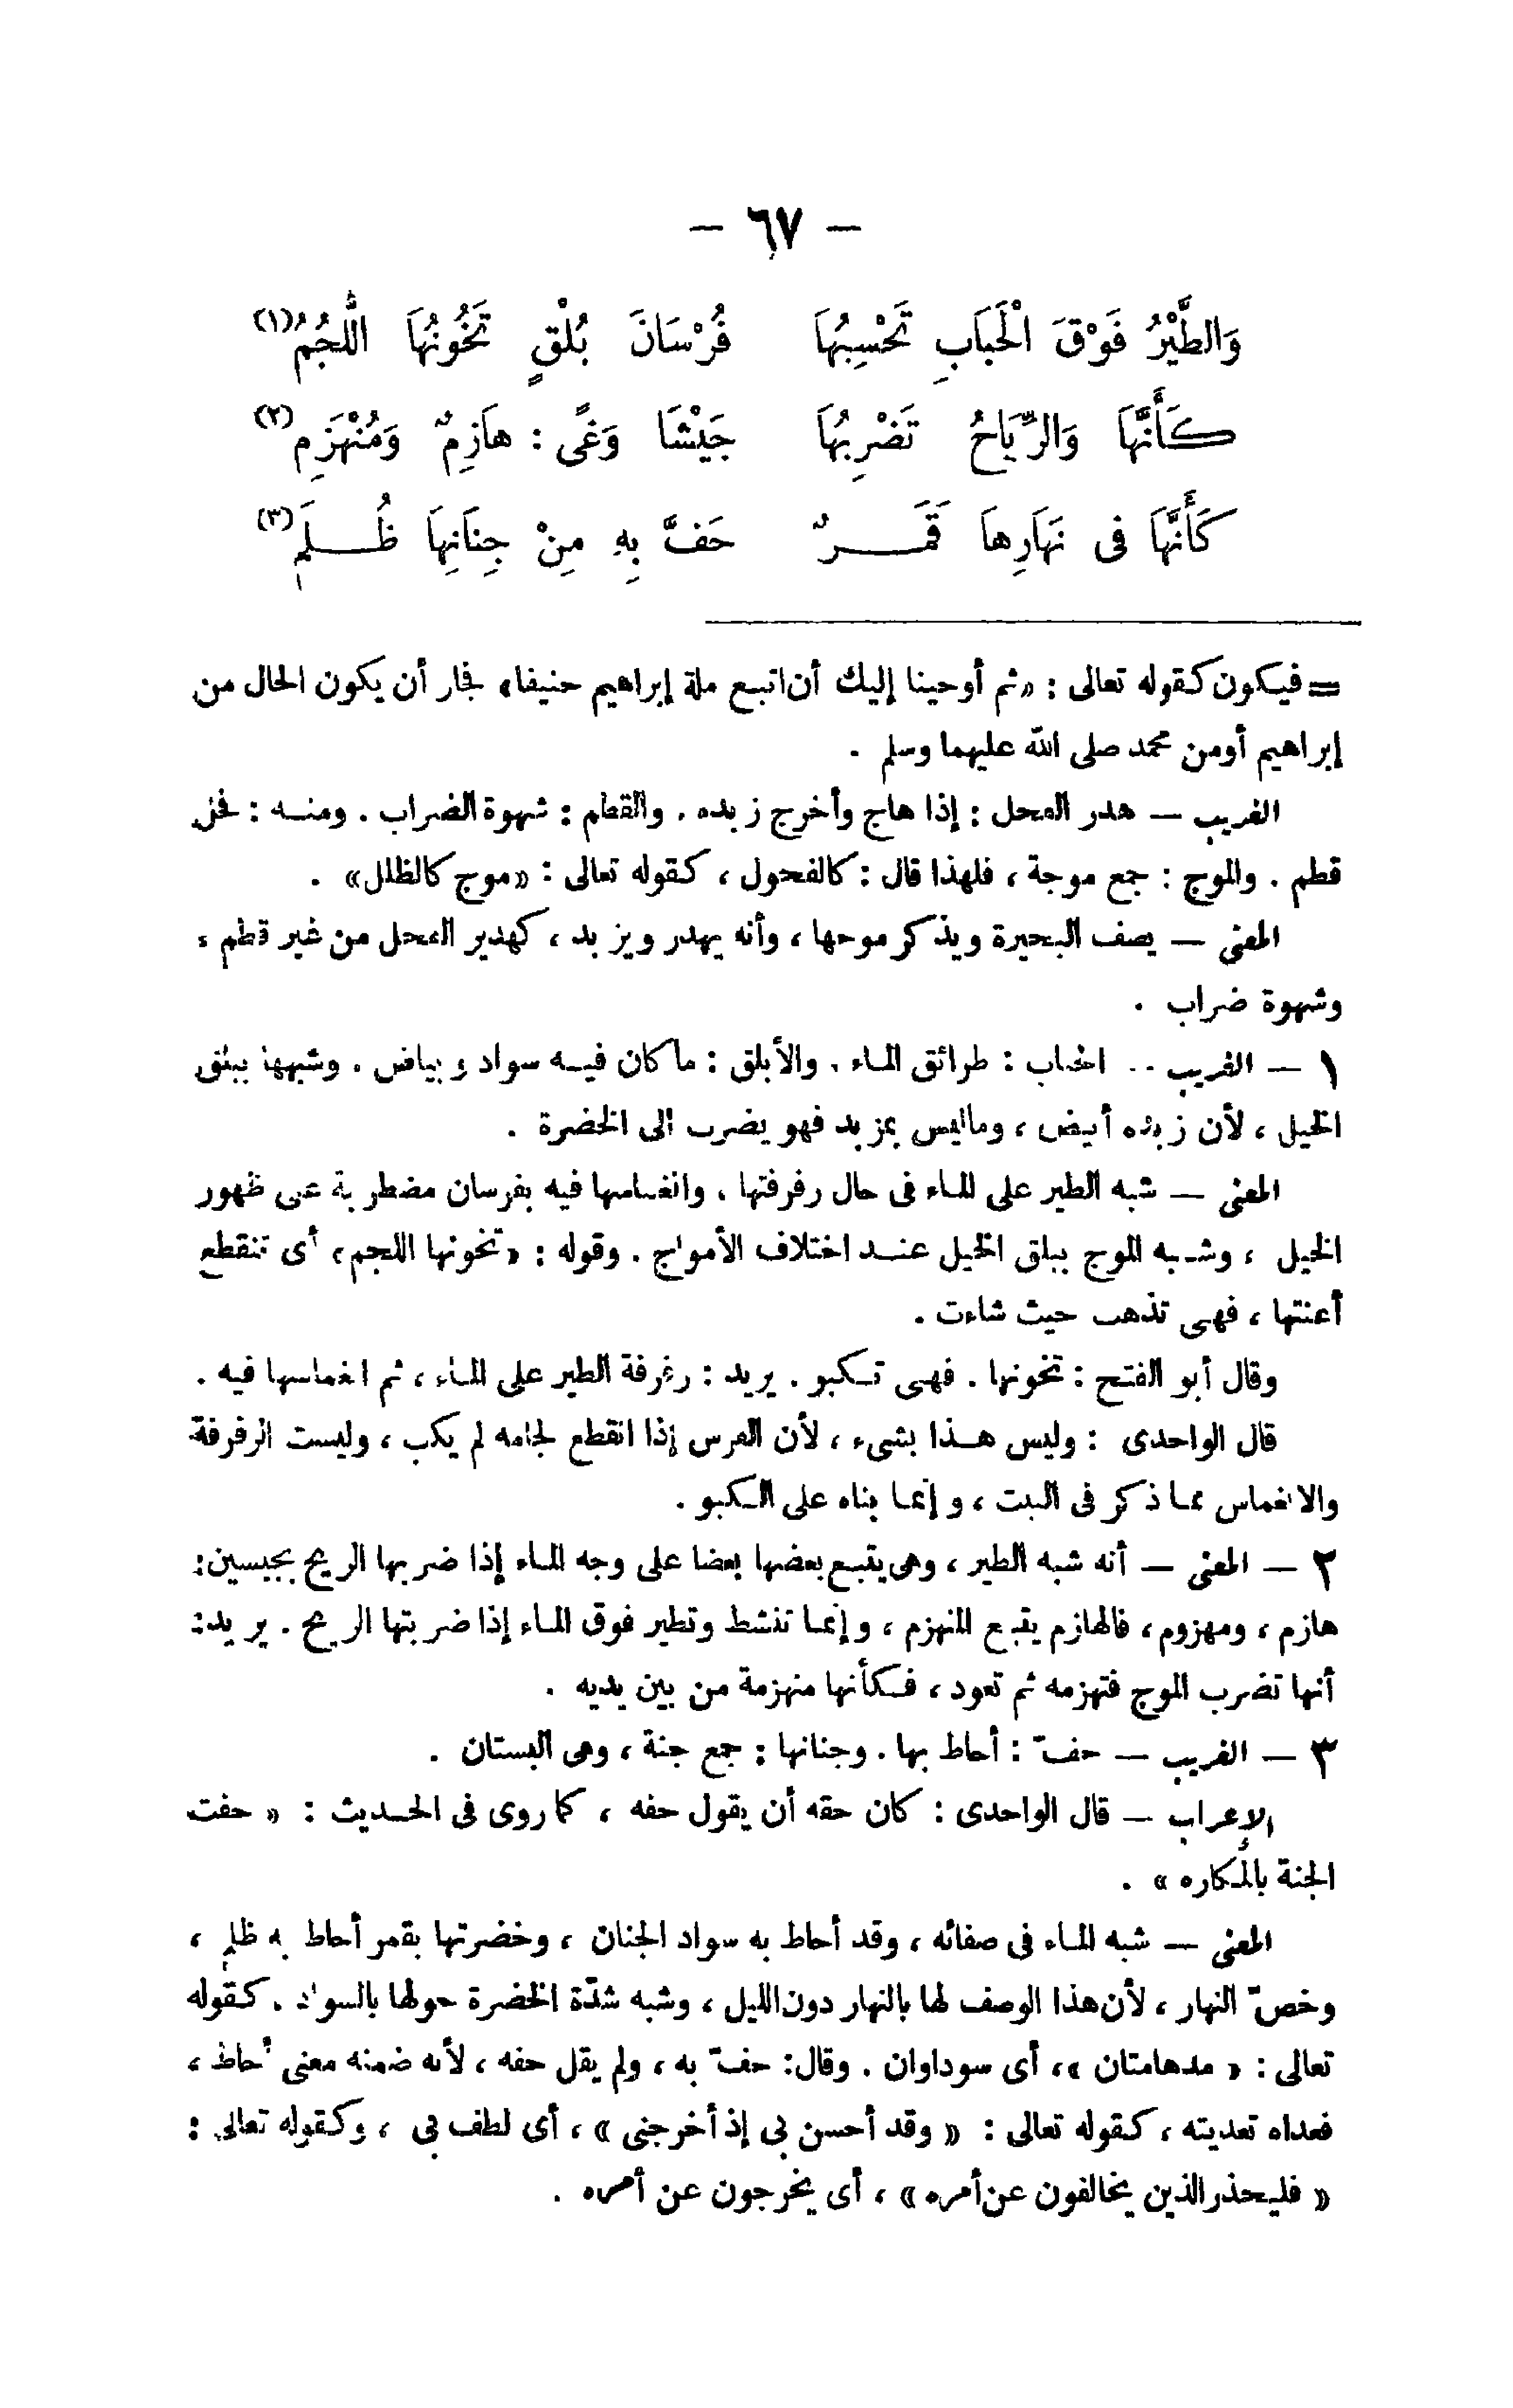 — ٦٧ —
وَالطَّيْرُ فَوْقَ الْحَبَابِ تَحْسِبُهَا فُرْسَانَ بُلْقٍ تَخُونُهَا اللُّجُمُ (١)
كَأَنَّهَا وَالرِّيَاحُ تَضْرِبُهَا جَيْشَا وَغًى : هَازِمٌ وَمُنْهَزِمِ (٢)
كَأَنَّهَا فى نَهَارِهَا قَمَـــرٌ حَفَّ بِهِ مِنْ جِنَانِهَا ظُـــلَمِ (٣)
= فيكون كقوله تعالى : «ثم أوحينا إليك أن اتبع ملة إبراهيم حنيفا» فجار أن يكون الحال من
إبراهيم أو من محمد صلى الله عليهما وسلم .
الغريب — هدر الفحل : إذا هاج وأخرج زبده . والقطم : شهوة الضراب . ومنـه : فحل
قطم . والموج : جمع موجة ، فلهذا قال : كالفحول ، كقوله تعالى : «موج كالظلل» .
المعنى — يصف البحيرة ويذكر موجها ، وأنه يهدر ويزبد ، كهدير الفحل من غير قطم ،
وشهوة ضراب .
١ — الغريب .. الحباب : طرائق المـاء . والأبلق : ما كان فيـه سواد وبياض . وشبهها ببلق
الخيل ، لأن زبده أبيض ، وماليس بمزبد فهو يضرب الى الخضرة .
المعنى — شبه الطير على المـاء فى حال رفرفتها ، وانغماسها فيه بفرسان مضطربة على ظهور
الخيل ، وشـبه الموج ببلق الخيل عنـد اختلاف الأمواج . وقوله : «تخونها اللجم» أى تنقطع
أعنتها ، فهى تذهب حيث شاءت .
وقال أبو الفتح : تخونها . فهى تـكبو . يريد : رفرفة الطير على المـاء ، ثم انغماسها فيه .
قال الواحدى : وليس هـذا بشىء ، لأن الفرس إذا انقطع لجامه لم يكب ، وليست الرفرفة
والانغماس مما ذكر فى البيت ، وإنما بناه على الـكبو .
٢ — المعنى — أنه شبه الطير ، وهى يتبع بعضها بعضا على وجه المـاء إذا ضربها الريح بجيسين:
هازم ، ومهزوم ، فالهازم يتبع المنهزم ، وإنما تنشط وتطير فوق المـاء إذا ضربتها الريح . يريد:
أنها تضرب الموج فتهزمه ثم تعود ، فـكأنها منهزمة من بين يديه .
٣ — الغريب — حفّ : أحاط بها . وجنانها : جمع جنة ، وهى البستان .
الإعراب — قال الواحدى : كان حقه أن يقول حفه ، كما روى فى الحـديث : « حفت
الجنة بالمـكاره » .
المعنى — شبه المـاء فى صفائه ، وقد أحاط به سواد الجنان ، وخضرتها بقمر أحاط به ظلم ،
وخصّ النهار ، لأن هذا الوصف لها بالنهار دون الليل ، وشبه شدّة الخضرة حولها بالسواد . كقوله
تعالى : « مدهامتان » ، أى سوداوان . وقال: حفّ به ، ولم يقل حفه ، لأنه ضمنه معنى أحاط ،
فعداه تعديته ، كقوله تعالى : « وقد أحسن بى إذ أخرجنى » ، أى لطف بى ، وكقوله تعالى :
« فليحذر الذين يخالفون عن أمره » ، أى يخرجون عن أمره .